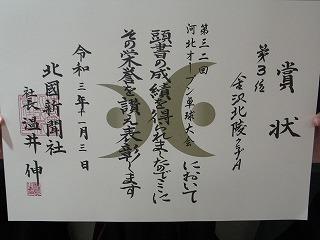 賞状
第3位
金沢北陵クラA
第三二回
河北オープン卓球大会において
頭書の成績を得られましたのでここに
その栄誉を讃え表彰します
令和三年十一月三日
北國新聞社
社長 温井伸